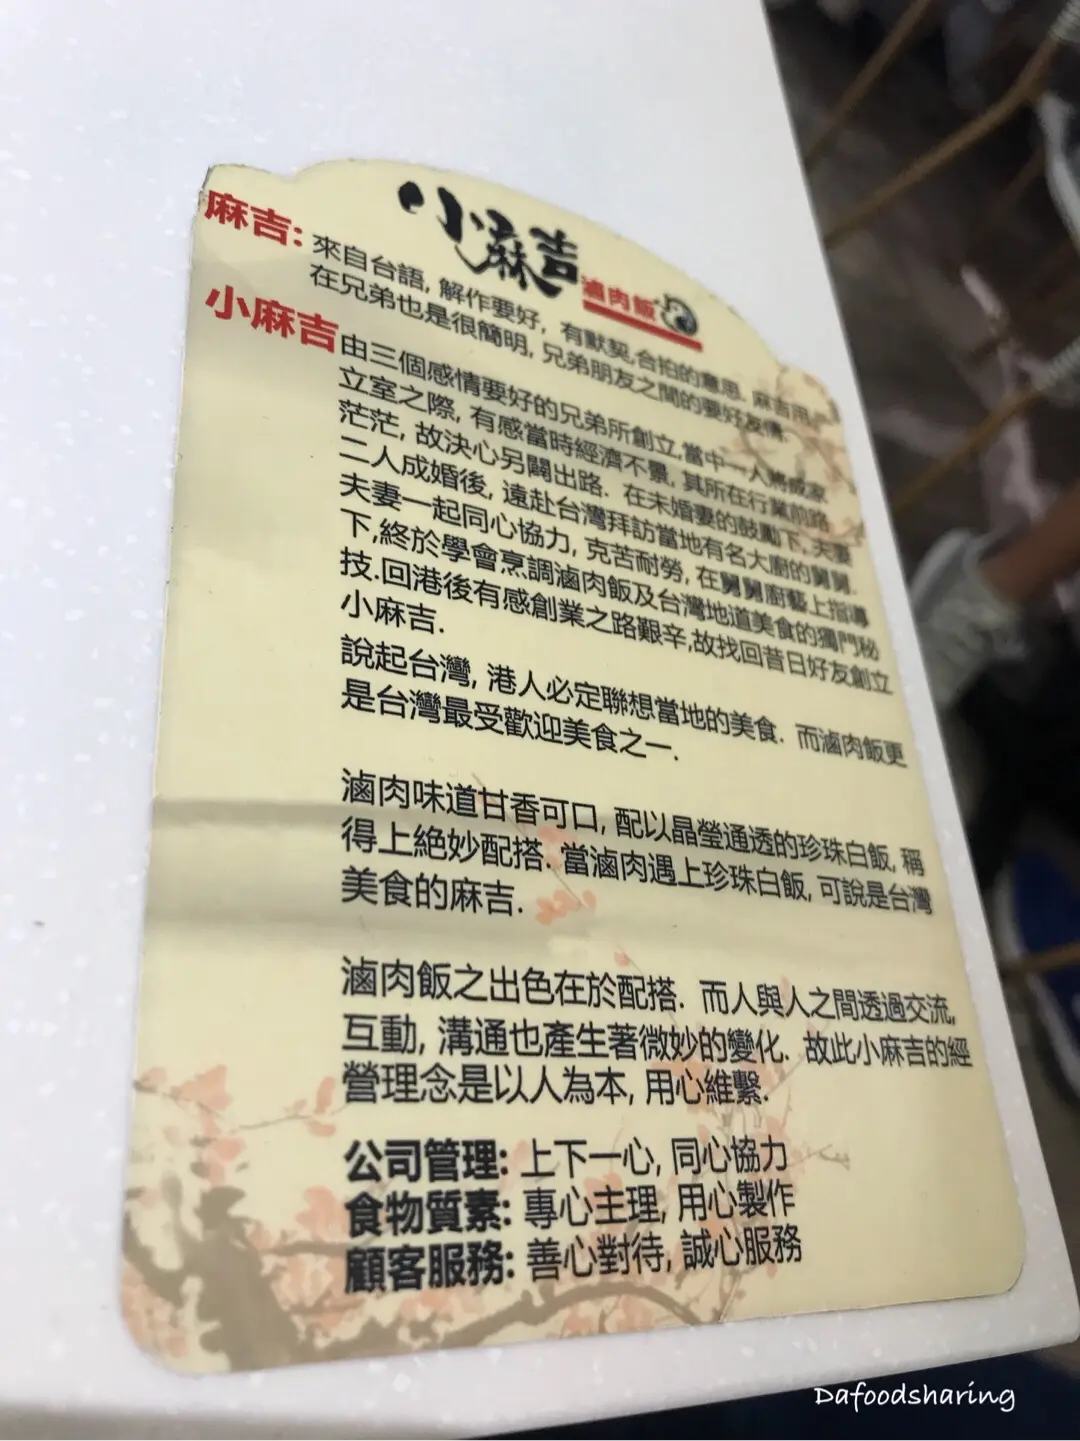 小麻吉
滷肉飯
麻吉: 來自台語, 解作要好, 有默契,合拍的意思. 麻吉用
在兄弟也是很簡明, 兄弟朋友之間的要好友情.
小麻吉由三個感情要好的兄弟所創立,當中一人將成家
立室之際, 有感當時經濟不景, 其所在行業前路
茫茫, 故決心另闢出路. 在未婚妻的鼓勵下, 夫妻
二人成婚後, 遠赴台灣拜訪當地有名大廚的舅舅.
夫妻一起同心協力, 克苦耐勞, 在舅舅廚藝上指導
下,終於學會烹調滷肉飯及台灣地道美食的獨門秘
技.回港後有感創業之路艱辛,故找回昔日好友創立
小麻吉.
說起台灣, 港人必定聯想當地的美食. 而滷肉飯更
是台灣最受歡迎美食之一.
滷肉味道甘香可口, 配以晶瑩通透的珍珠白飯, 稱
得上絕妙配搭. 當滷肉遇上珍珠白飯, 可說是台灣
美食的麻吉.
滷肉飯之出色在於配搭. 而人與人之間透過交流,
互動, 溝通也產生著微妙的變化. 故此小麻吉的經
營理念是以人為本, 用心維繫.
公司管理: 上下一心, 同心協力
食物質素: 專心主理, 用心製作
顧客服務: 善心對待, 誠心服務
Dafoodsharing